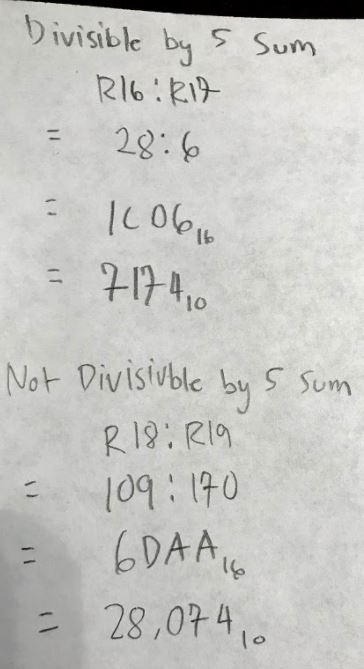 Divisible by 5 Sum
R16:R17
= 28:6
= 1C06₁₆
= 7174₁₀
Not Divisivble by 5 Sum
R18:R19
= 109:170
= 6DAA₁₆
= 28,074₁₀